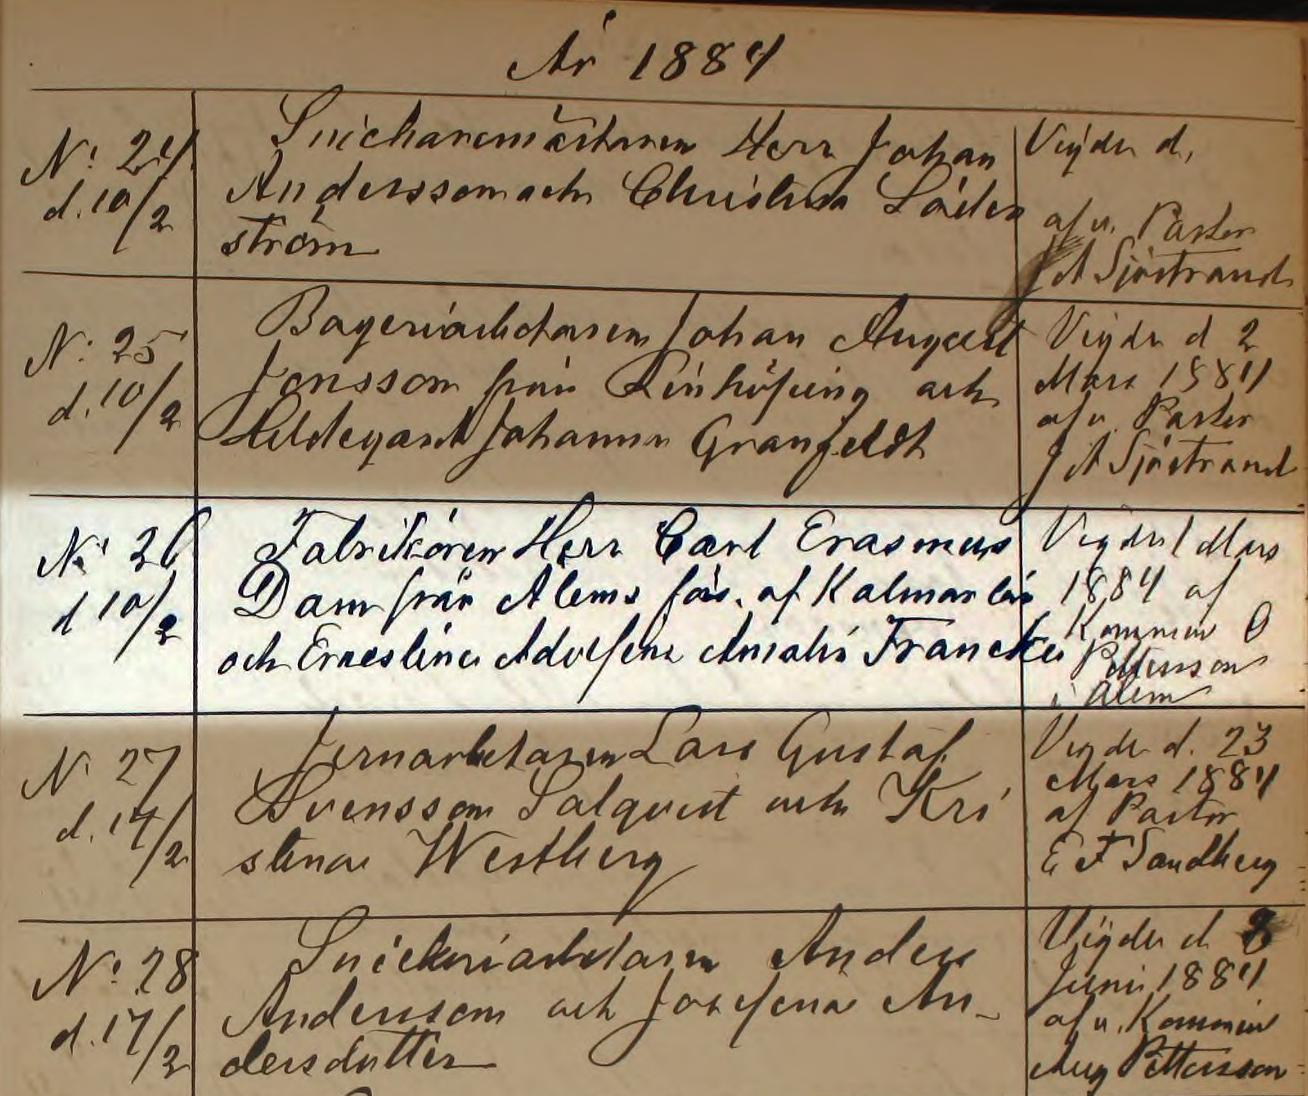 År 1884
N: 24
d. 10/2
Snickaremästaren Herr Johan
Andersson och Christina Söder
ström
Vigde d.
af u. Pastor
J A Sjöstrand
N: 25
d. 10/2
Bageriarbetaren Johan August
Jonsson från Linköping och
Hildegard Johanna Granfeldt
Vigde d 2
Mars 1884
af u. Pastor
J A Sjöstrand
N: 26
d 10/2
Fabrikören Herr Carl Erasmus
Dam från Ålems förs. af Kalmar län
och Ernestina Adolfina Amalia Francke
Vigde 1 Mars
1884 af
Kommin O
Pettersson
i Ålem
N: 27
d. 14/2
Jernarbetaren Lars Gustaf
Svensson Salqvist och Kri
stina Westberg
Vigde d. 23
Mars 1884
af Pastor
E F Sandberg
N: 28
d. 17/2
Snickeriarbetaren Anders
Andersson och Josefina An-
dersdotter
Vigde d 8
Juni 1884
af u. Kommin
Aug Pettersson